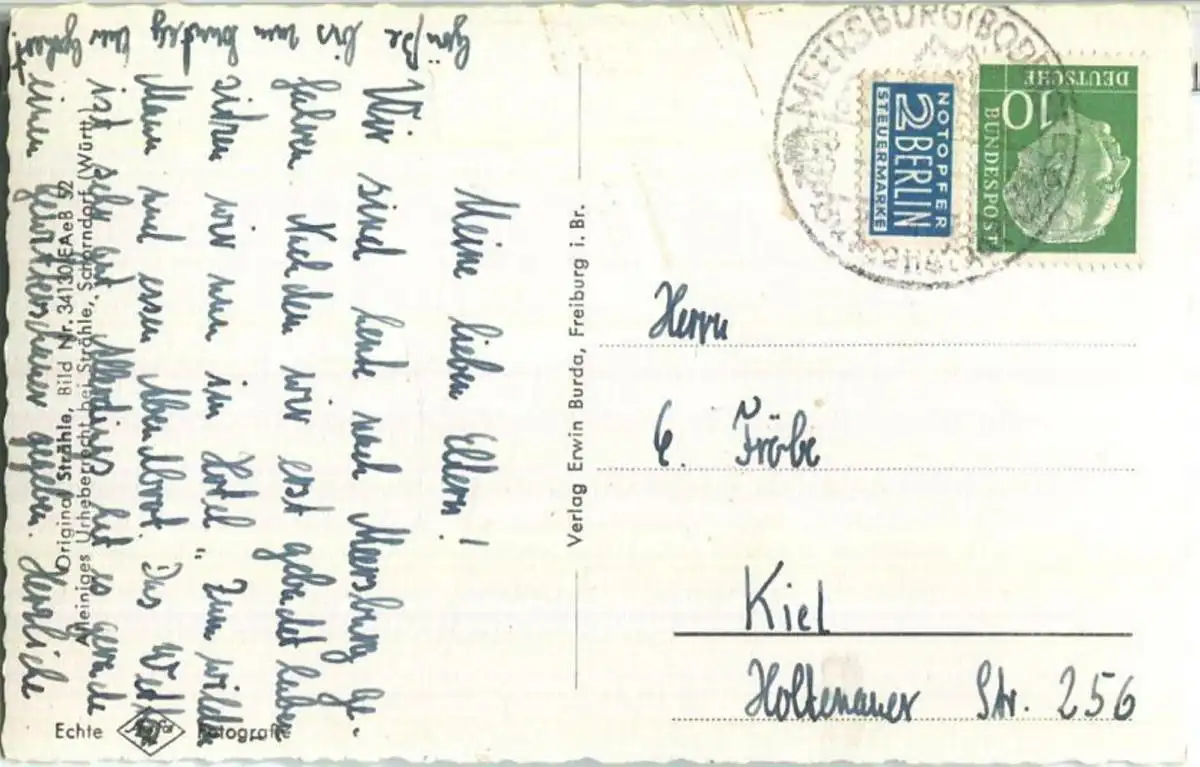 Meine lieben Eltern!
Wir sind heute nach Meersburg ge-
fahren. Nachdem wir erst gebadet haben
sitzen wir nun im Hotel „Zum wilden
Mann und essen Abendbrot. Das Wetter
ist sehr gut. Allerdings hat es gerade
einen Gewitterschauer gegeben. Herzliche
Grüße bis zum
Original Strähle, Bild Nr. 34130/EAeB 52
Alleiniges Urheberrecht bei Strähle, Schorndorf (Württ.)
Echte Agfa Fotografie
Verlag Erwin Burda, Freiburg i. Br.
MEERSBURG (BODENSEE)
NOTOPFER
2 BERLIN
STEUERMARKE
10
DEUTSCHE
BUNDESPOST
Herrn
E. Fröbe
Kiel
Holtenauer Str. 256